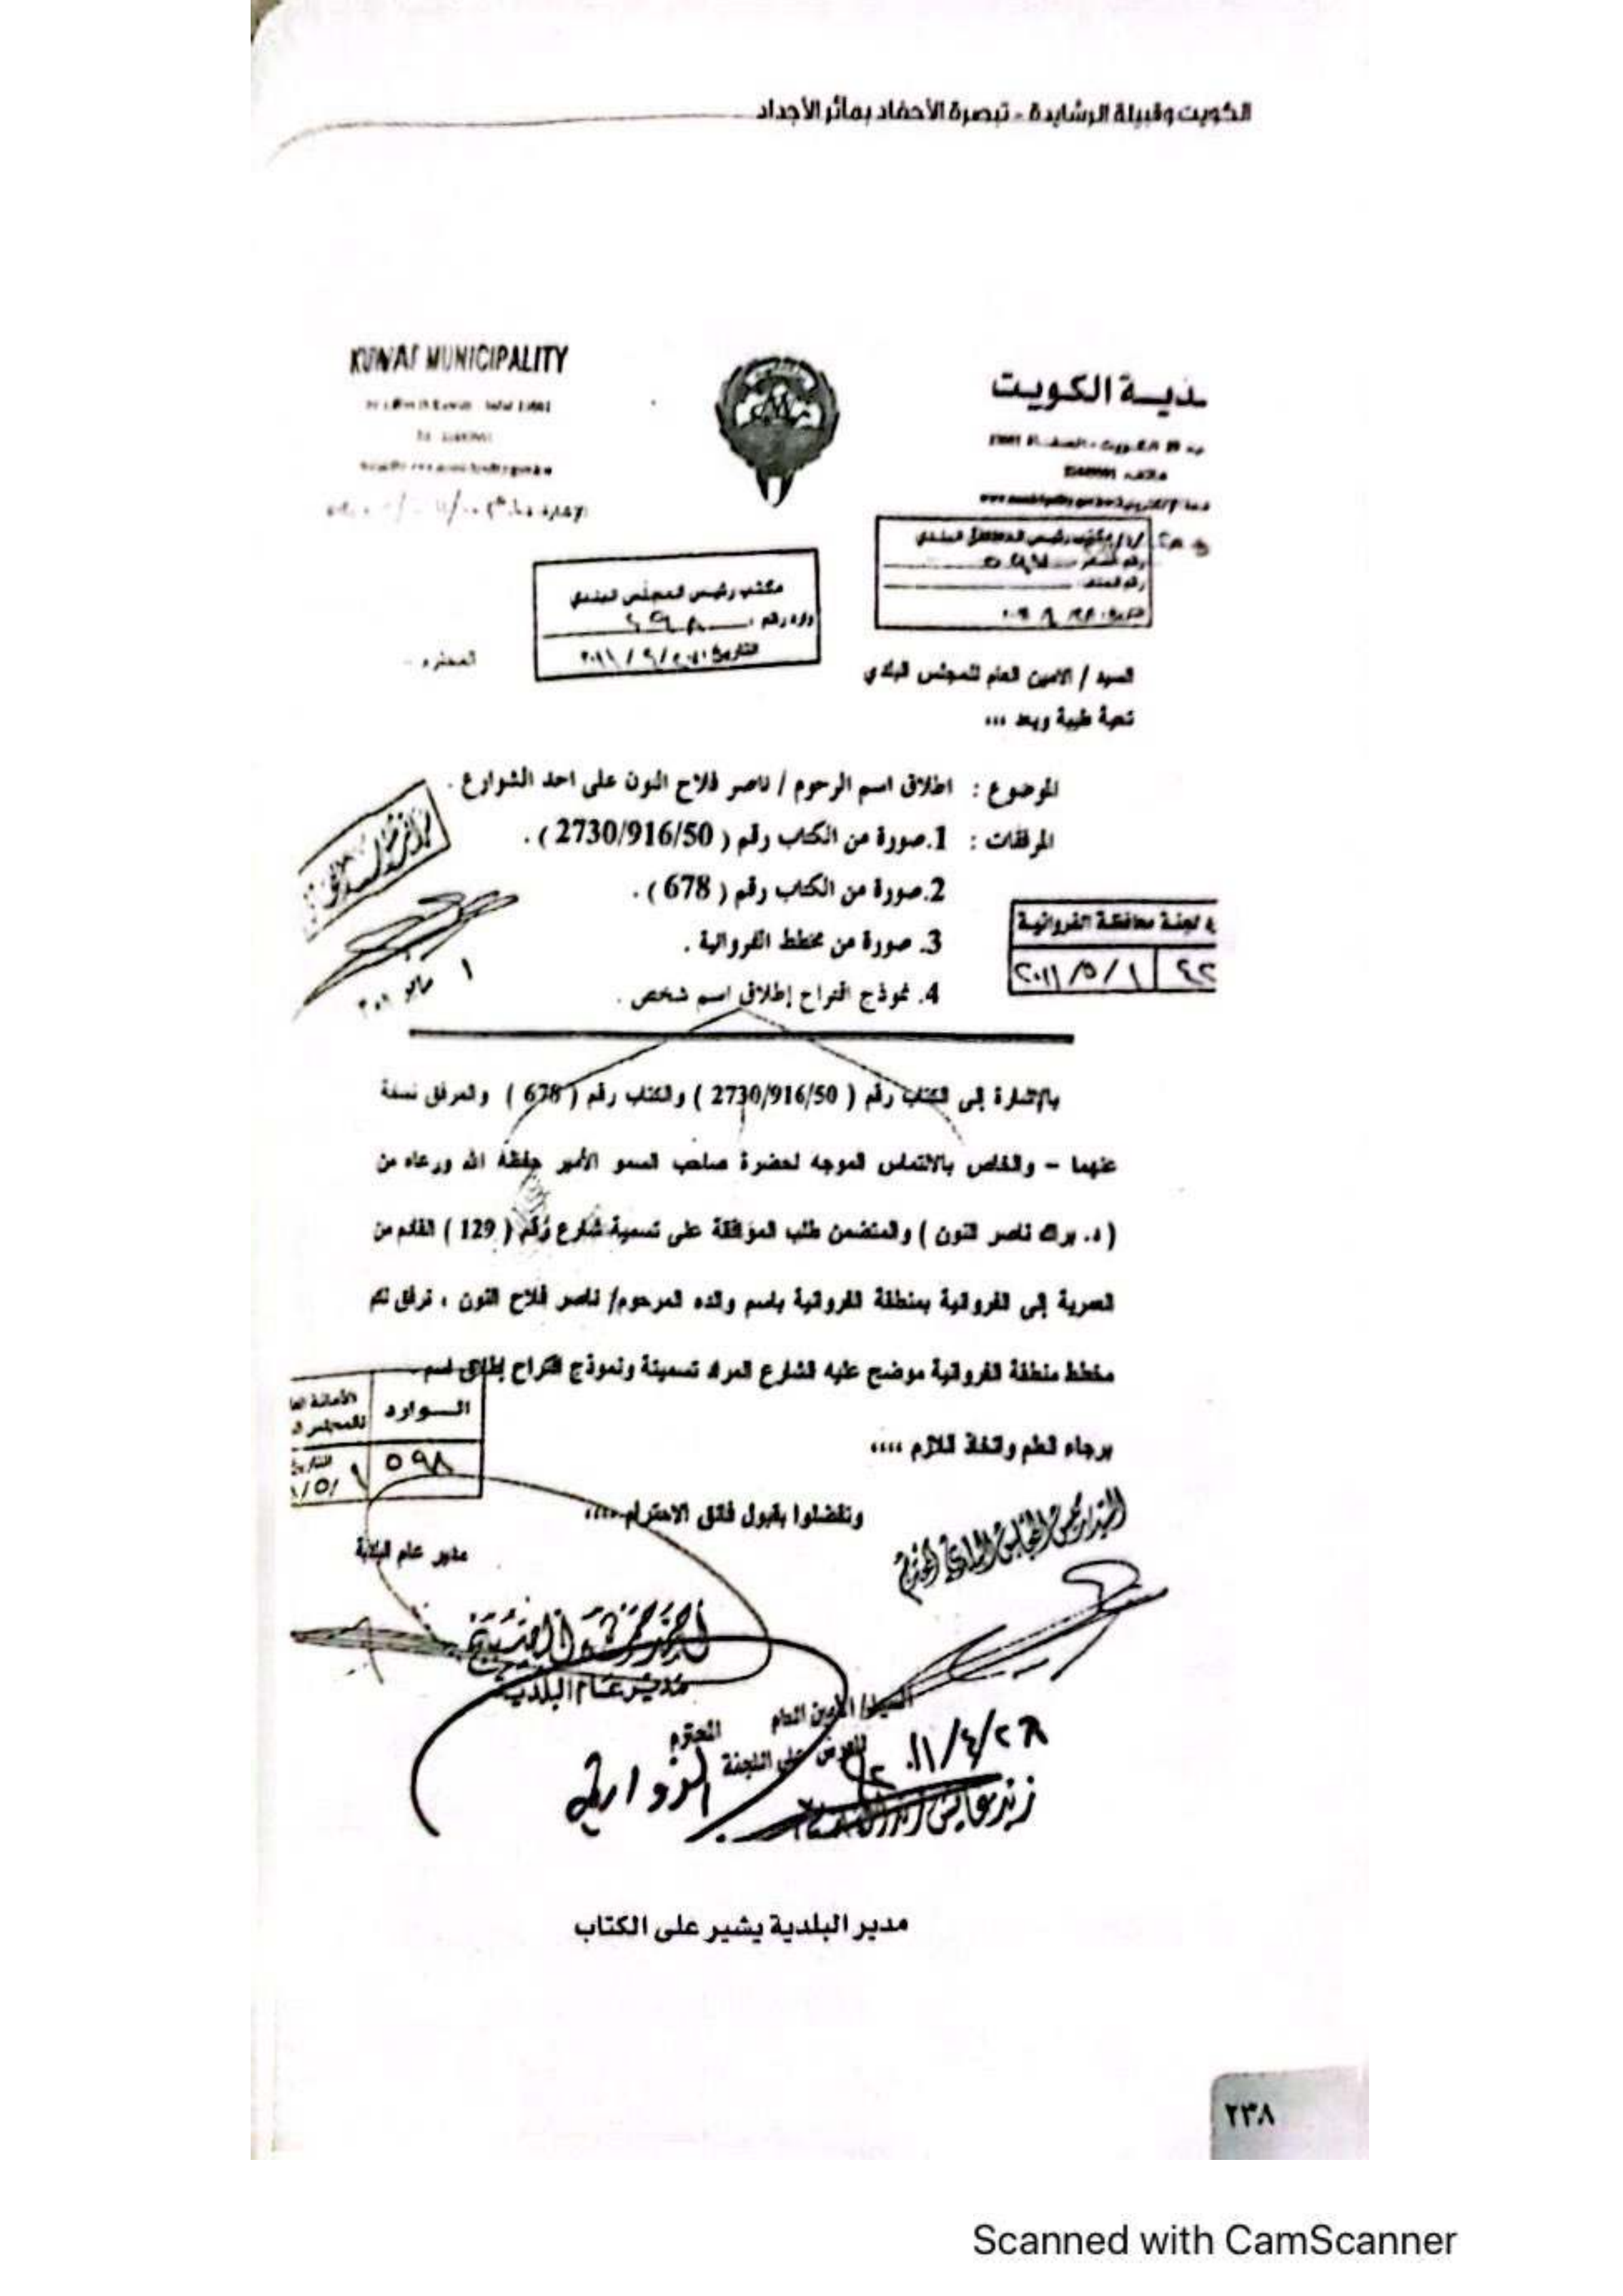 الكويت وقبيلة الرشايدة - تبصرة الأحفاد بمآثر الأجداد
KUWAIT MUNICIPALITY
ـدية الكويت
مكتب رئيس المجلس البلدي
مكتب رئيس المجلس البلدي
وارد رقم
التاريخ
السيد / الامين العام للمجلس البلدي
المحترم
تحية طيبة وبعد ...
الموضوع : اطلاق اسم الرحوم / ناصر فلاح النون على احد الشوارع .
المرفقات : 1.صورة من الكتاب رقم ( 2730/916/50 ) .
2.صورة من الكتاب رقم ( 678 ) .
3. صورة من مخطط الفروانية .
4. نموذج اقتراح إطلاق اسم شخص .
لجنة محافظة الفروانية
٢٠١١/٥/١
بالإشارة إلى الكتاب رقم ( 2730/916/50 ) والكتاب رقم ( 678 ) والمرفق نسخة
عنهما – والخاص بالالتماس الموجه لحضرة صاحب السمو الأمير حفظه الله ورعاه من
( د. براك ناصر النون ) والمتضمن طلب الموافقة على تسمية شارع رقم ( 129 ) القادم من
العمرية إلى الفروانية بمنطقة الفروانية باسم والده المرحوم/ ناصر فلاح النون ، نرفق لكم
مخطط منطقة الفروانية موضح عليه الشارع المراد تسميتة ونموذج اقتراح إطلاق اسم .
الـوارد
٥٩٨
برجاء العلم واتخاذ اللازم ،،،،
وتفضلوا بقبول فائق الاحترام ،،،،
السيد رئيس المجلس البلدي المحترم
مدير عام البلدية
مدير عام البلدية
السيد/ الأمين العام المحترم
للعرض على اللجنة
٢٠١١/٤/٢٨
مدير البلدية يشير على الكتاب
٢٣٨
Scanned with CamScanner